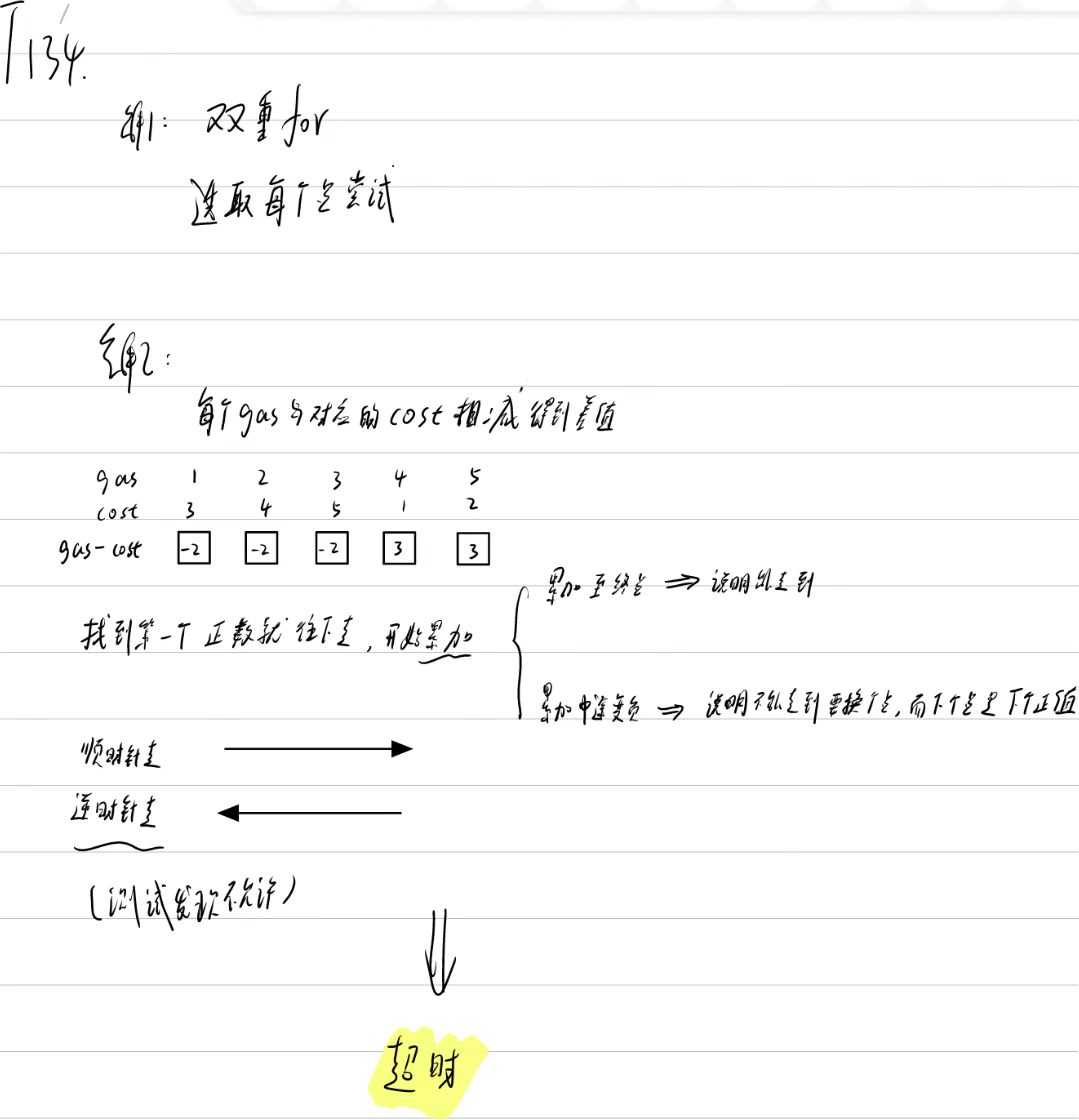 T134.
解1: 双重for
选取每个点尝试
解2:
每个gas与对应的cost相减得到差值
gas 1 2 3 4 5
cost 3 4 5 1 2
gas-cost -2 -2 -2 3 3
找到第一个正数就往下走,开始累加
累加至终点 ⇒ 说明能走到
累加中途变负 ⇒ 说明不能走到要换个点,而下个点是下个正值
顺时针走 →
逆时针走 ←
(测试发现不允许)
⇓
超时